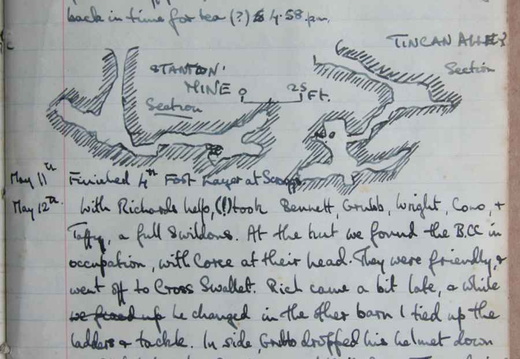 back in time for tea (?) 4.58 pm.
TINCAN ALLEY
Section
STANTON'
MINE
Section
0 25
Ft.
May 11th Finished 4th Foot Layer at
May 12th. With Richards help, (!) took Bennett, Grubb, Wright, Cono, +
Taffy, a full Swildons. At the hut we found the B.C.C in
occupation, with Corce at their head. They were friendly, +
went off to Cross Swallet. Rich came a bit late, a while
he changed in the other barn I tied up the
ladders + tackle. In side, Grubb dropped his helmet down